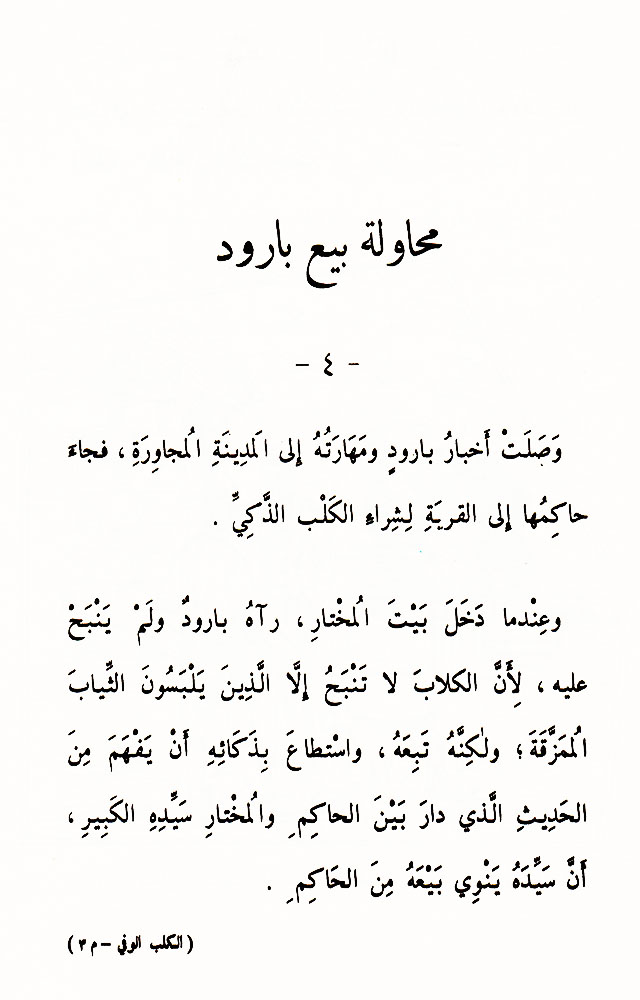 محاولة بيع بارود
- ٤ -
وَصَلَتْ أَخبارُ بارودٍ ومَهَارَتُهُ إلى المَدِينَةِ المُجاوِرَةِ ، فجاءَ
حاكِمُها إلى القريَةِ لِشِراءِ الكَلْبِ الذَّكِيِّ .
وعِنْدما دَخَلَ بَيْتَ المُخْتارِ ، رآهُ بارودٌ ولَمْ يَنْبَحْ
عليه ، لِأَنَّ الكلابَ لا تَنْبَحُ إلَّا الَّذِينَ يَلْبَسُونَ الثِّيابَ
المُمَزَّقَةَ ؛ ولٰكِنَّهُ تَبِعَهُ ، واسْتطاعَ بِذَكائِهِ أَنْ يَفْهَمَ مِنَ
الحَدِيثِ الَّذي دارَ بَيْنَ الحاكِمِ والمُخْتارِ سَيِّدِهِ الكَبِيرِ ،
أَنَّ سَيِّدَهُ يَنْوِي بَيْعَهُ مِنَ الحَاكِمِ .
( الكلب الوفي – م ٣ )